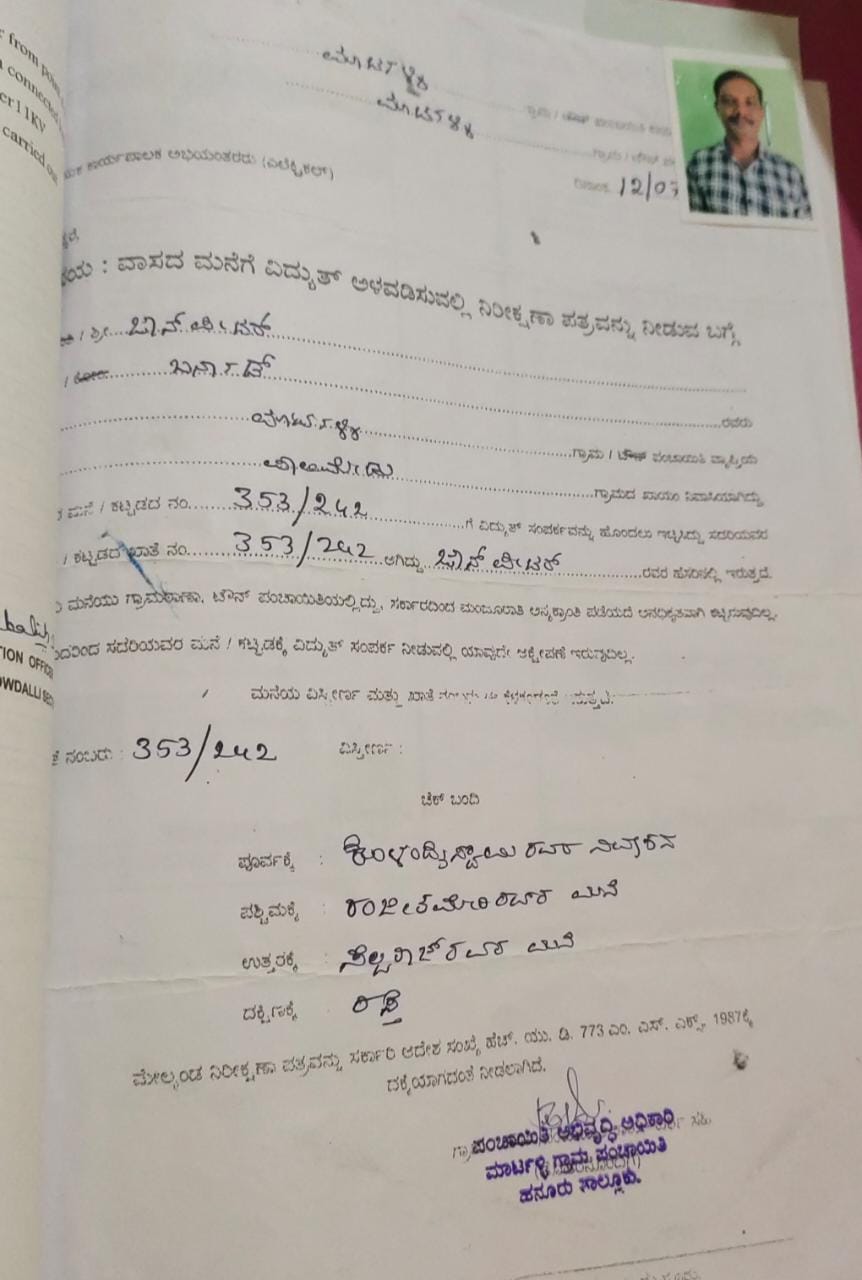 from
connected
er11KV
carried ou
ಮಾರ್ಟಳ್ಳಿ
ಮಾರ್ಟಳ್ಳಿ
ಗ್ರಾಮ /
ದಿನಾಂಕ 12/07
ಕಾರ್ಯಪಾಲಕ ಅಭಿಯಂತರರು (ಎಲೆಕ್ಟ್ರಿಕಲ್)
ಯ : ವಾಸದ ಮನೆಗೆ ವಿದ್ಯುತ್ ಅಳವಡಿಸುವಲ್ಲಿ ನಿರೀಕ್ಷಣಾ ಪತ್ರವನ್ನು ನೀಡುವ ಬಗ್ಗೆ
/ ಶ್ರೀ.... ಜಾನ್ ಪೀಟರ್
ಬರ್ನಾಡ್ ರವರು
ಮಾರ್ಟಳ್ಳಿ ಗ್ರಾಮ / ಟೌನ್ ಪಂಚಾಯಿತಿ ವ್ಯಾಪ್ತಿಯ
ಗ್ರಾಮದ ಖಾಯಂ ನಿವಾಸಿಯಾಗಿದ್ದು
ಮನೆ / ಕಟ್ಟಡದ ನಂ. 353/242 ಗೆ ವಿದ್ಯುತ್ ಸಂಪರ್ಕವನ್ನು ಹೊಂದಲು ಇಚ್ಛಿಸಿದ್ದು ಸದರಿಯವರ
/ ಕಟ್ಟಡದ ಖಾತೆ ನಂ. 353/242 ಆಗಿದ್ದು ಜಾನ್ ಪೀಟರ್ ರವರ ಹೆಸರಿನಲ್ಲಿ ಇರುತ್ತದೆ.
ಮನೆಯು ಗ್ರಾಮಠಾಣಾ, ಟೌನ್ ಪಂಚಾಯಿತಿಯಲ್ಲಿದ್ದು, ಸರ್ಕಾರದಿಂದ ಮಂಜೂರಾತಿ ಅನ್ಯಕ್ರಾಂತಿ ಪಡೆಯದೆ ಅನಧಿಕೃತವಾಗಿ ಕಟ್ಟಿಸಿರುವುದಿಲ್ಲ.
ದರಿಂದ ಸದರಿಯವರ ಮನೆ / ಕಟ್ಟಡಕ್ಕೆ ವಿದ್ಯುತ್ ಸಂಪರ್ಕ ನೀಡುವಲ್ಲಿ ಯಾವುದೇ ಆಕ್ಷೇಪಣೆ ಇರುವುದಿಲ್ಲ.
TION OFFICE
OWDALLI SEC
ಮನೆಯ ವಿಸ್ತೀರ್ಣ ಮತ್ತು ಖಾತೆ
ನಂಬರು : 353/242 ವಿಸ್ತೀರ್ಣ :
ಚೆಕ್ ಬಂದಿ
ಪೂರ್ವಕ್ಕೆ : ರವರ ನಿವೇಶನ
ಪಶ್ಚಿಮಕ್ಕೆ : ರವರ ಮನೆ
ಉತ್ತರಕ್ಕೆ : ಸೆಲ್ವರಾಜ್ ರವರ ಮನೆ
ದಕ್ಷಿಣಕ್ಕೆ : ರಸ್ತೆ
ಮೇಲ್ಕಂಡ ನಿರೀಕ್ಷಣಾ ಪತ್ರವನ್ನು ಸರ್ಕಾರಿ ಆದೇಶ ಸಂಖ್ಯೆ ಹೆಚ್. ಯು. ಡಿ. 773 ಎಂ. ಎಸ್. ಎಕ್ಸ್. 1987ಕ್ಕೆ
ದಕ್ಕೆಯಾಗದಂತೆ ನೀಡಲಾಗಿದೆ.
ಪಂಚಾಯಿತಿ ಅಭಿವೃದ್ಧಿ ಅಧಿಕಾರಿ
ಮಾರ್ಟಳ್ಳಿ ಗ್ರಾಮ ಪಂಚಾಯಿತಿ
ಹನೂರು ತಾಲ್ಲೂಕು.